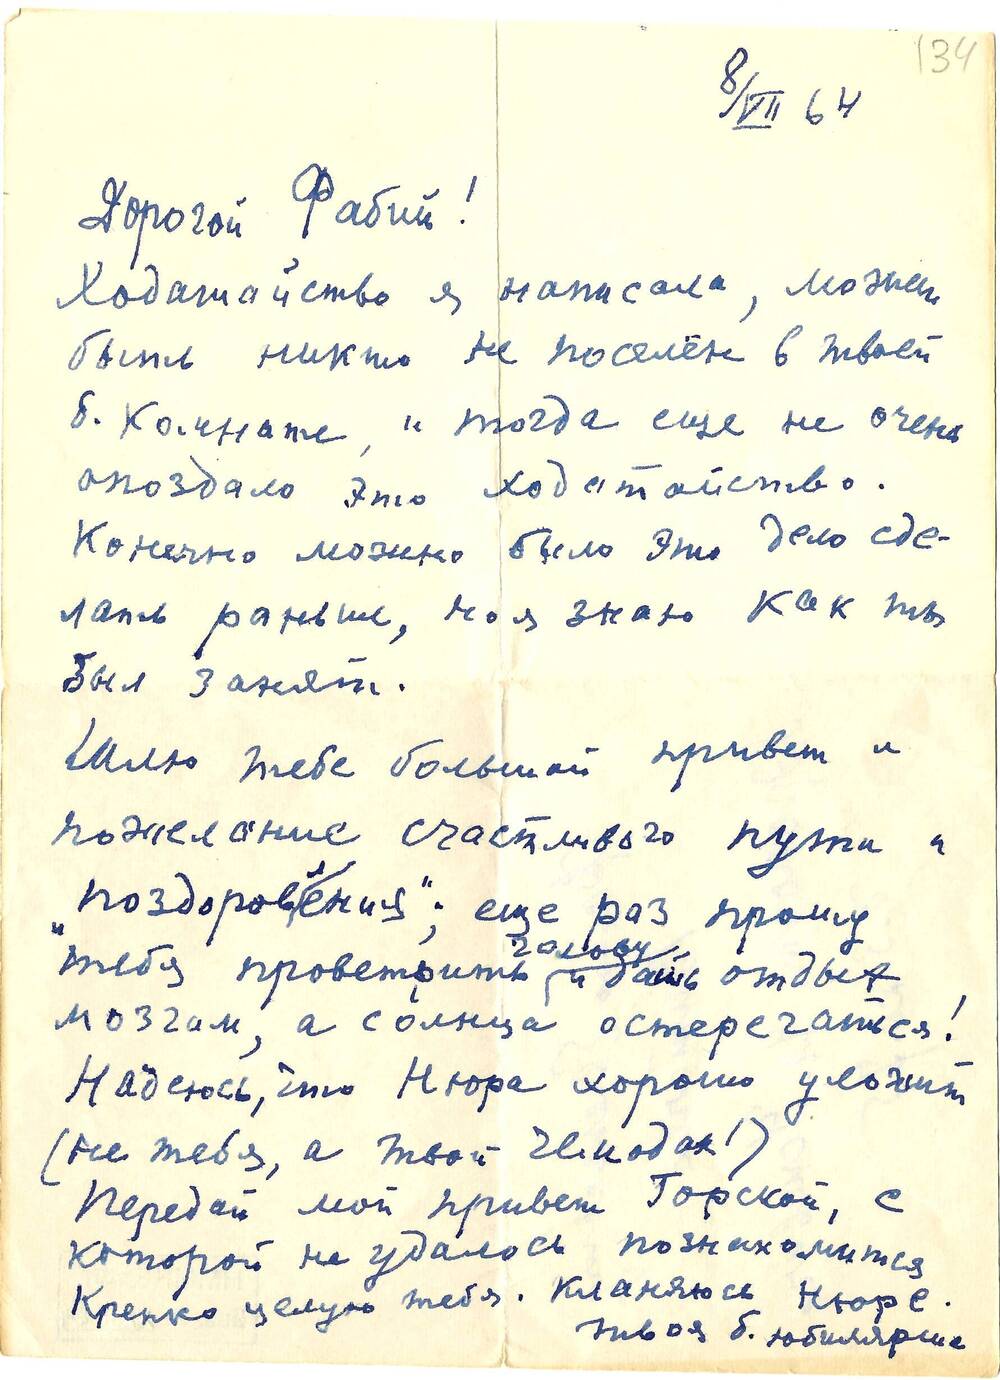 134
8/VII 64
Дорогой Фабий!
Ходатайство я написала, может
быть никто не поселён в твоей
б. комнате, и тогда еще не очень
опоздало это ходатайство.
Конечно можно было это дело сде-
лать раньше, но я знаю как ты
был занят.
Шлю тебе большой привет и
пожелание счастливого пути и
"поздоровления"; еще раз прошу
тебя проветрить голову и дать отдых
мозгам, а солнца остерегаться!
Надеюсь, что Нюра хорошо уложит
(не тебя, а твой чемодан!)
Передай мой привет Горской, с
которой не удалось познакомится
Крепко целую тебя. Кланяюсь Нюре.
твоя б. юбилярша